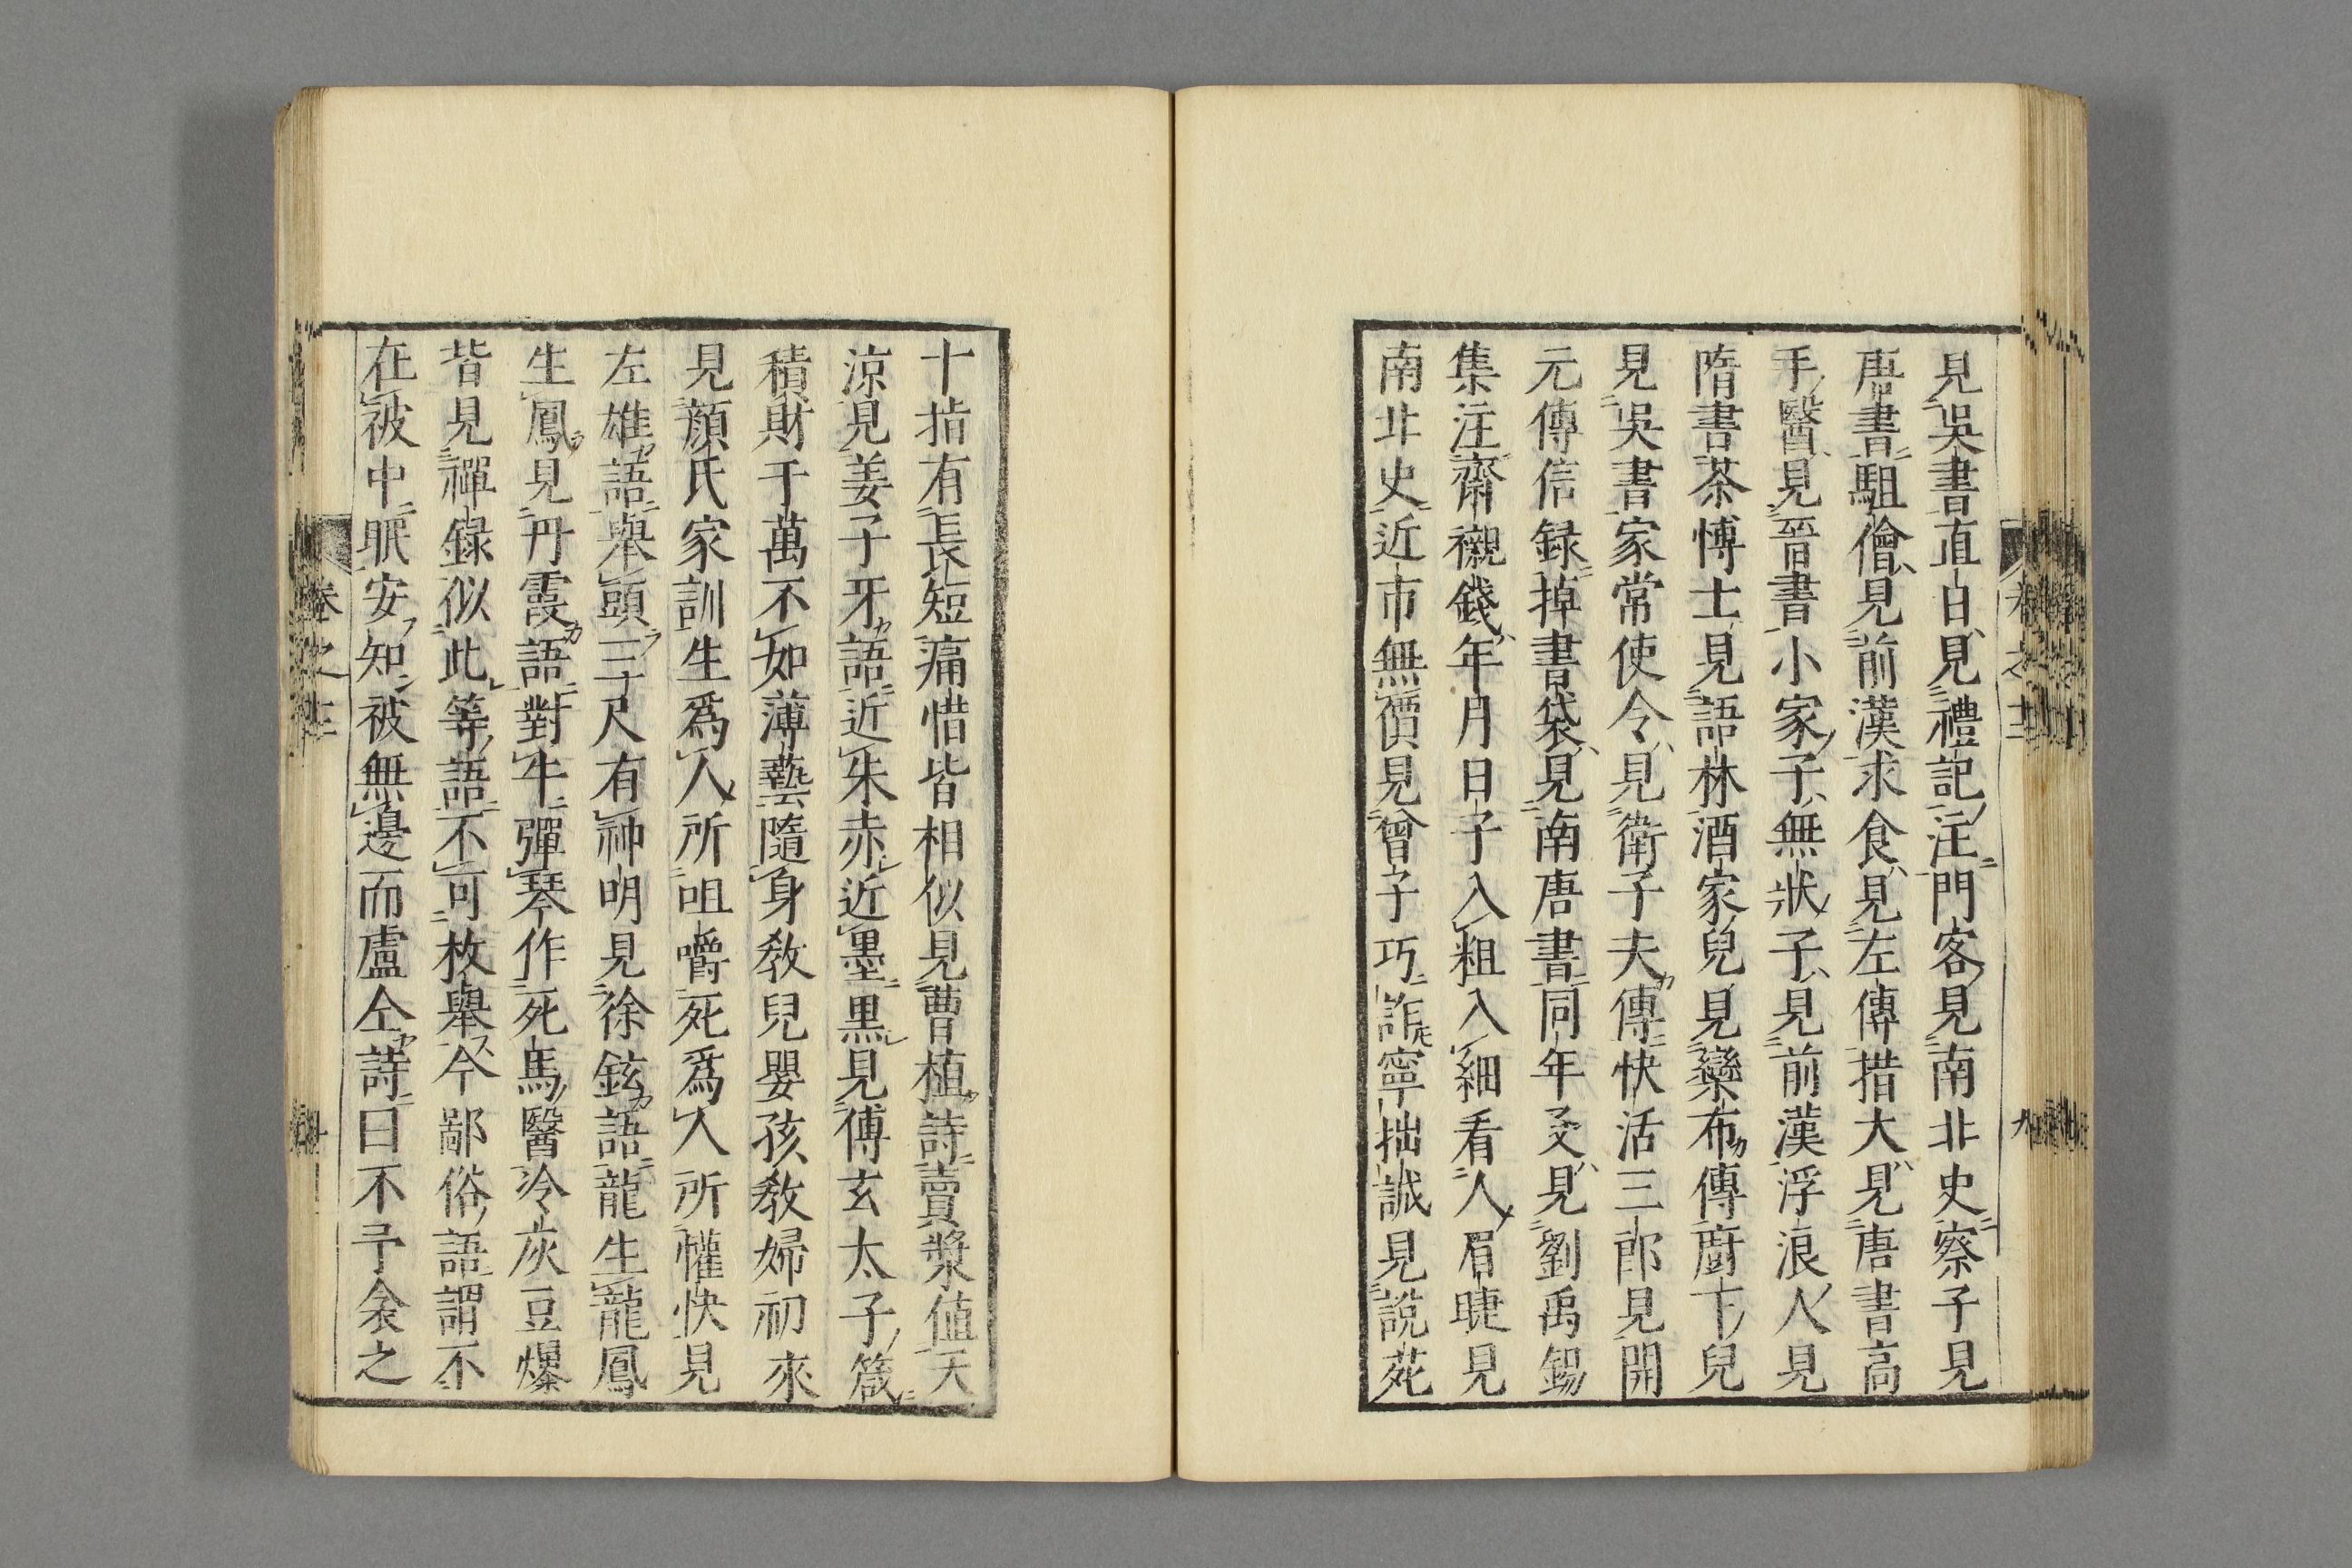 見吳書直白見禮記注門客見南北史察子見
唐書駔儈見前漢求食見左傳措大見唐書高
手醫見晉書小家子無狀子見前漢浮浪人見
隋書茶博士見語林酒家兒見欒布傳廚下兒
見吳書家常使令見衛子夫傳快活三郎見開
元傳信錄掉書袋見南唐書同年爻見劉禹錫
集注齋襯錢年月日子入粗入細看人眉睫見
南北史近市無價見曾子巧詐寧拙誠見說苑
卷之
九
十指有長短痛惜皆相似見曹植詩賣漿值天
涼見姜子牙語近朱赤近墨黑見傅玄太子箴
積財千萬不如薄藝隨身教兒嬰孩教婦初來
見顏氏家訓生爲人所咀嚼死爲人所懽快見
左雄語舉頭三尺有神明見徐鉉語龍生龍鳳
生鳳見丹霞語對牛彈琴作死馬醫冷灰豆爆
皆見禪錄似此等語不可枚舉今鄙俗語謂不
在被中眠安知被無邊而盧仝詩曰不予衾之
卷之